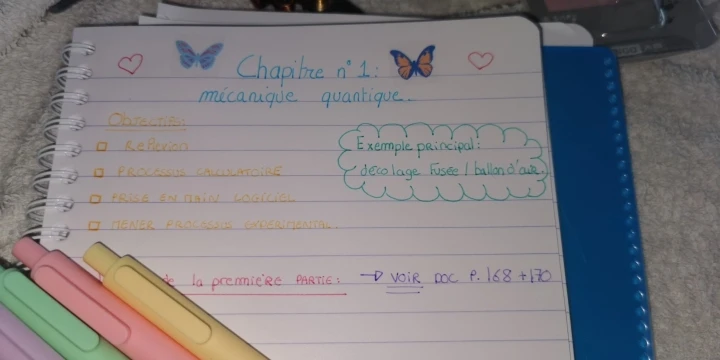 Chapitre n°1:
mécanique quantique.
Objectifs:
Réflexion
PROCESSUS CALCULATOIRE
PRISE EN MAIN LOGICIEL
MENER PROCESSUS EXPERIMENTAL.
Exemple principal:
décolage Fusée / ballon d'air.
la premmière PARTIE:
→ VOIR DOC P. 168 + 170